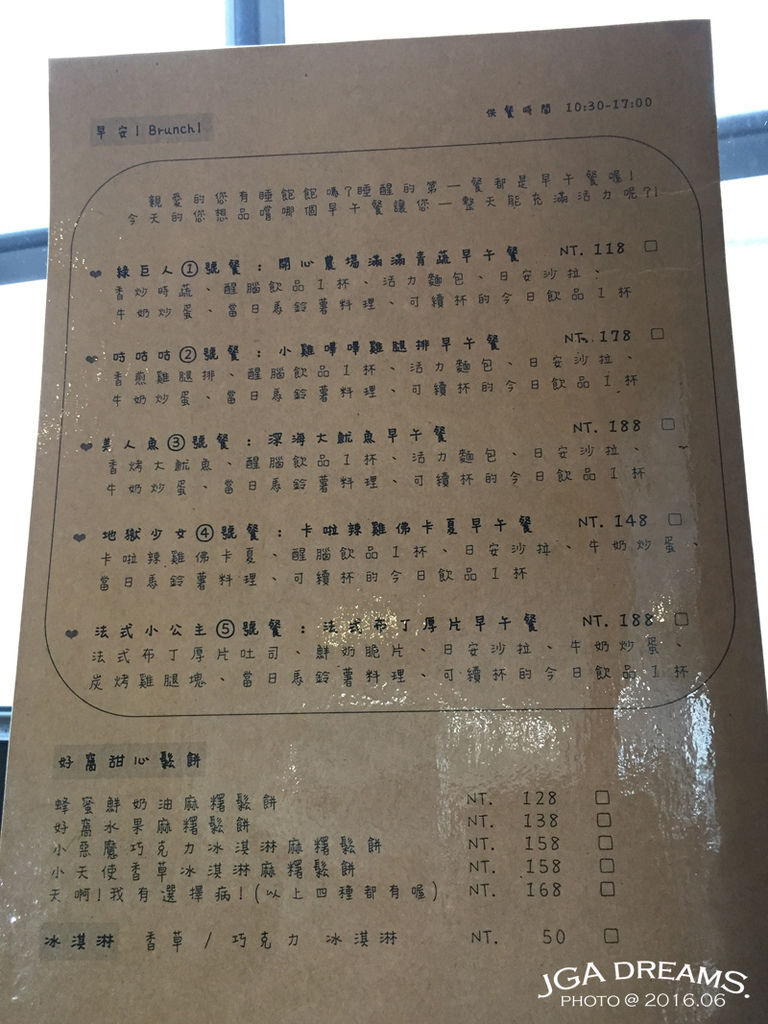 早安!Brunch!
供餐時間 10:30-17:00
親愛的您有睡飽飽嗎?睡醒的第一餐都是早午餐喔!
今天的您想品嚐哪個早午餐讓您一整天能充滿活力呢?!
綠巨人①號餐:開心農場滿滿青蔬早午餐 NT. 118
香炒時蔬、醒腦飲品1杯、活力麵包、日安沙拉、
牛奶炒蛋、當日馬鈴薯料理、可續杯的今日飲品1杯
咕咕咕②號餐:小雞嗶嗶雞腿排早午餐 NT. 178
香煎雞腿排、醒腦飲品1杯、活力麵包、日安沙拉、
牛奶炒蛋、當日馬鈴薯料理、可續杯的今日飲品1杯
美人魚③號餐:深海大魷魚早午餐 NT. 188
香烤大魷魚、醒腦飲品1杯、活力麵包、日安沙拉、
牛奶炒蛋、當日馬鈴薯料理、可續杯的今日飲品1杯
地獄少女④號餐:卡啦辣雞佛卡夏早午餐 NT. 148
卡啦辣雞佛卡夏、醒腦飲品1杯、日安沙拉、牛奶炒蛋、
當日馬鈴薯料理、可續杯的今日飲品1杯
法式小公主⑤號餐:法式布丁厚片早午餐 NT. 188
法式布丁厚片吐司、鮮奶脆片、日安沙拉、牛奶炒蛋、
炭烤雞腿塊、當日馬鈴薯料理、可續杯的今日飲品1杯
好窩甜心鬆餅
蜂蜜鮮奶油麻糬鬆餅 NT. 128
好窩水果麻糬鬆餅 NT. 138
小惡魔巧克力冰淇淋麻糬鬆餅 NT. 158
小天使香草冰淇淋麻糬鬆餅 NT. 158
天啊!我有選擇病!(以上四種都有喔) NT. 168
冰淇淋 香草/巧克力 冰淇淋 NT. 50
JGA DREAMS.
PHOTO @ 2016.06